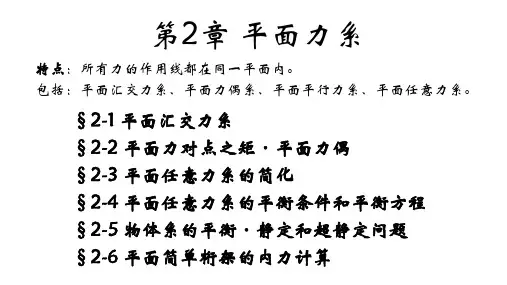 第2章 平面力系
特点：所有力的作用线都在同一平面内。
包括：平面汇交力系、平面力偶系、平面平行力系、平面任意力系。
§2-1 平面汇交力系
§2-2 平面力对点之矩·平面力偶
§2-3 平面任意力系的简化
§2-4 平面任意力系的平衡条件和平衡方程
§2-5 物体系的平衡·静定和超静定问题
§2-6 平面简单桁架的内力计算